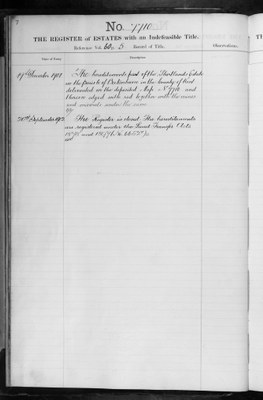 No. 1710
THE REGISTER of ESTATES with an Indefeasible Title.
Reference Vol. 60 5 Record of Title.
Date of Entry.
Description.
Observations.
The hereditaments part of the Shortlands Estate
in the parish of Beckenham in the County of Kent
delineated on the deposited Map No. and
thereon edged with red together with the mines
and minerals under the same
The Register is closed. The hereditaments
are registered under the Land Transfer Acts
1875 and 1897